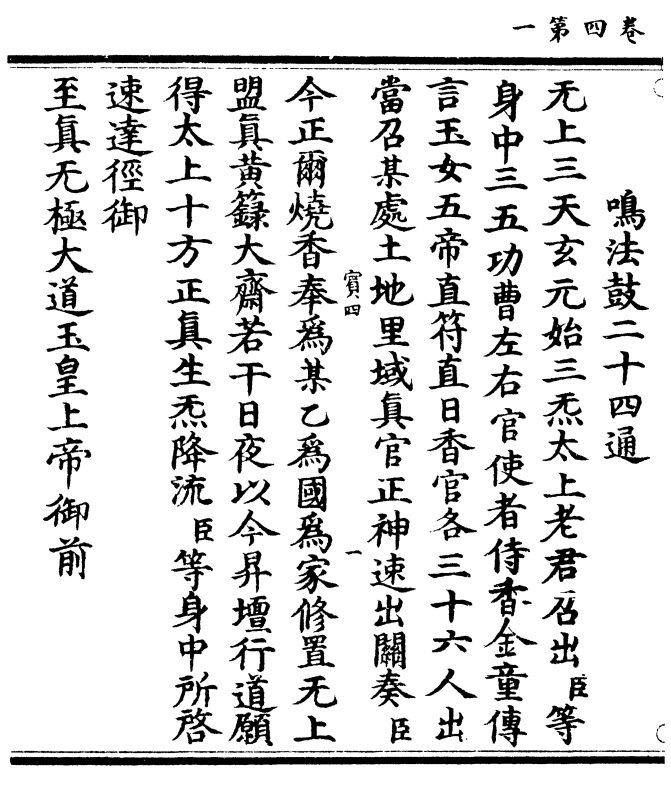 卷四第一
鳴法鼓二十四通
无上三天玄元始三炁太上老君召出臣等
身中三五功曹左右官使者侍香金童傳
言玉女五帝直符直日香官各三十六人出
當召某處土地里域眞官正神速出關奏臣
寳四 一
今正爾燒香奉爲某乙爲國爲家修置无上
盟眞黄籙大齋若干日夜以今昇壇行道願
得太上十方正眞生炁降流臣等身中所啓
速達徑御
至眞无極大道玉皇上帝御前